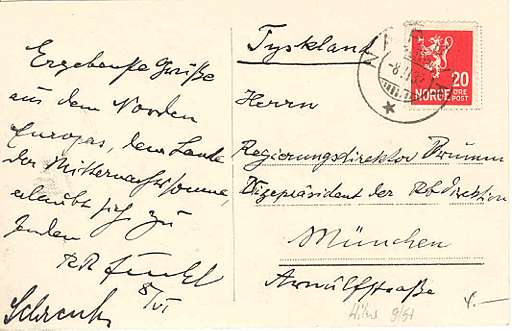 Ergebenste Grüße
aus dem Norden
Europas, dem Lande
der Mitternachtssonne,
erlaubt sich zu
senden
8/VI
Schrenk
Tyskland
Herrn
Regierungsdirektor
Vizepräsident der Rb direktion
München
Arnulfstraße
20
NORGE ØRE
POST